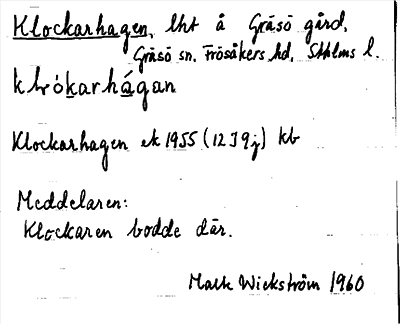 Klockarhagen, lht å Gräsö gård,
Gräsö sn. Frösåkers hd, Sthlms l.
klòkarhágan
Klockarhagen ek 1955 (12J9j) kb
Meddelaren:
Klockaren bodde där.
Wickström 1960